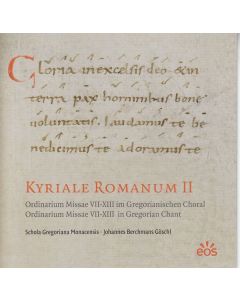 Gloria in excelsis deo & in
terra pax hominibus bone
voluntatis. laudamus te be
nedicimus te adoramus te
KYRIALE ROMANUM II
Ordinarium Missae VII-XIII im Gregorianischen Choral
Ordinarium Missae VII-XIII in Gregorian Chant
Schola Gregoriana Monacensis · Johannes Berchmans Göschl
eos